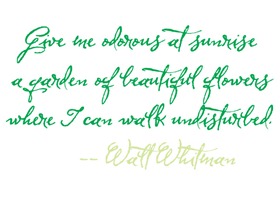 Give me odorous at sunrise
a garden of beautiful flowers
where I can walk undisturbed.
-- Walt Whitman